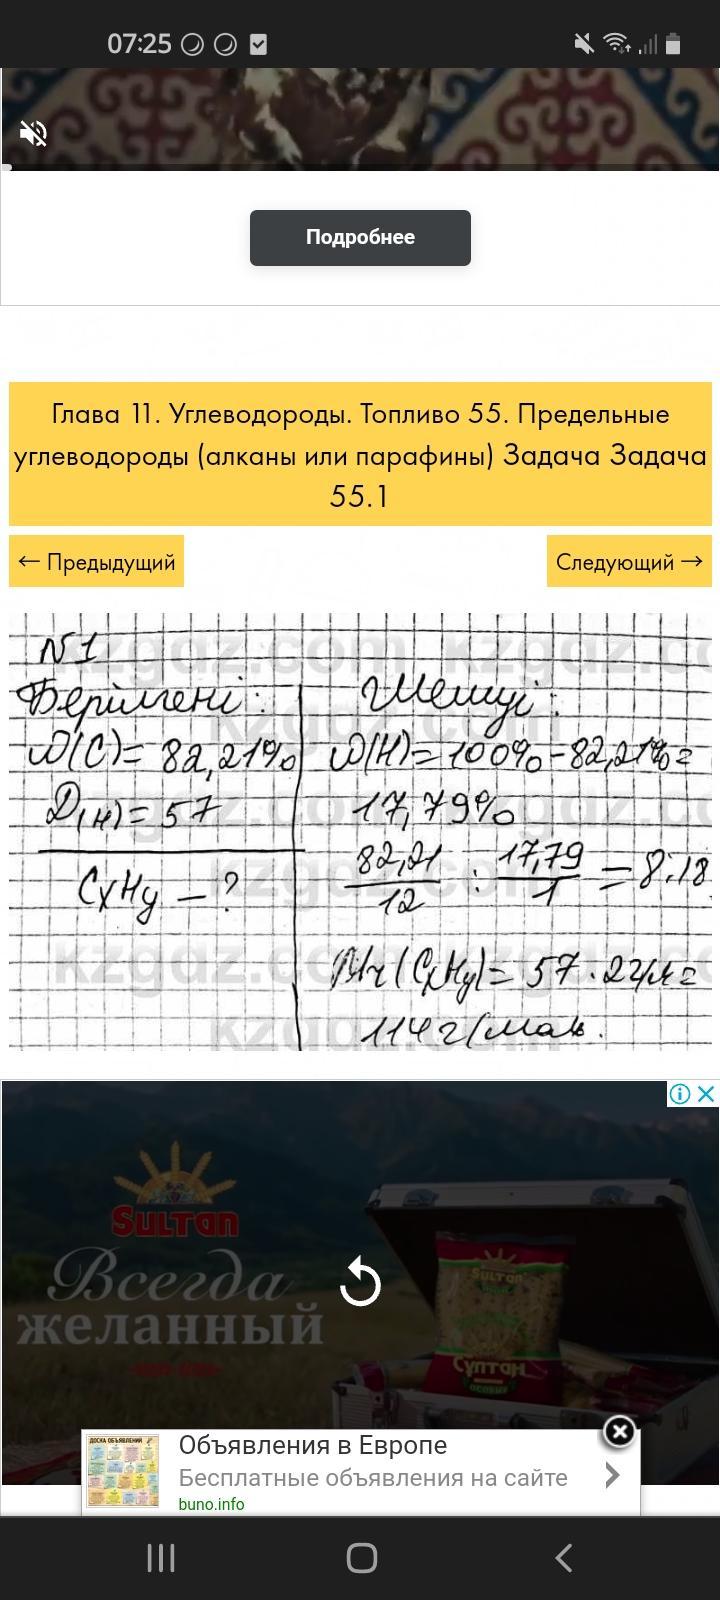 07:25
Подробнее
Глава 11. Углеводороды. Топливо 55. Предельные
углеводороды (алканы или парафины) Задача Задача
55.1
← Предыдущий
Следующий →
N1
Берілгені:
Шешуі:
ω(C)= 82,21%
ω(H)=100%-82,21%=
D(н)= 57
17,79%
CxHy - ?
82,21/12 : 17,79/1 = 8:18
Mr(CxHy)= 57·2г/м=
114г/моль.
kzgdz.com kzgdz.com
SULTAN
Всегда
желанный
SULTAN
СУЛТАН
ДОСКА ОБЪЯВЛЕНИЙ
Объявления в Европе
Бесплатные объявления на сайте
buno.info